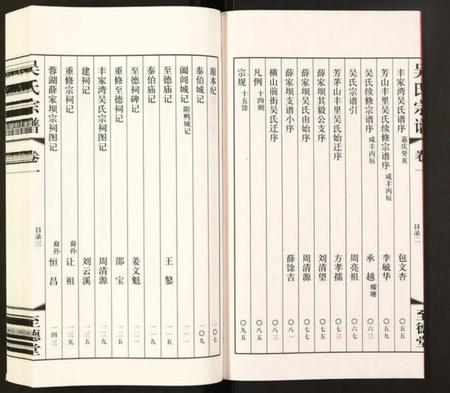 吴氏宗谱 卷一 目录二 至德堂
丰家湾吴氏谱序 嘉庆癸亥 包文杏 〇五五
芳山丰里吴氏续修宗谱序 咸丰丙辰 李毓华 〇五五
吴氏续修宗谱序 咸丰丙辰 承越 〇六三
吴氏宗谱引 周亮祖 〇六五
芳茅山丰里吴氏始迁序 方孝孺 〇七三
薛家坝其毅公支序 刘清望 〇七五
薛家坝吴氏由始序 周清源 〇七七
薛家坝支谱小序 薛馀吉 〇八一
横山前街吴氏迁序 〇八三
凡例 十四则 〇八五
宗规 十五馀 〇九五
原本纪 一〇七
泰伯城记 一〇九
阖闾城记 附鸭城记 一一一
至德庙记 王鏊 一一五
泰伯庙记 一一九
至德祠碑记 姜文魁 一二一
重修至德祠记 邵宝 一二五
丰家湾吴氏宗祠图记 周清源 一二九
建祠记 刘云溪 一三五
重修宗祠记 裔孙 让祖 一三九
蓉湖薛家坝宗祠图记 裔孙 恒昌 一四三
吴氏宗谱 卷一 目录三 至德堂